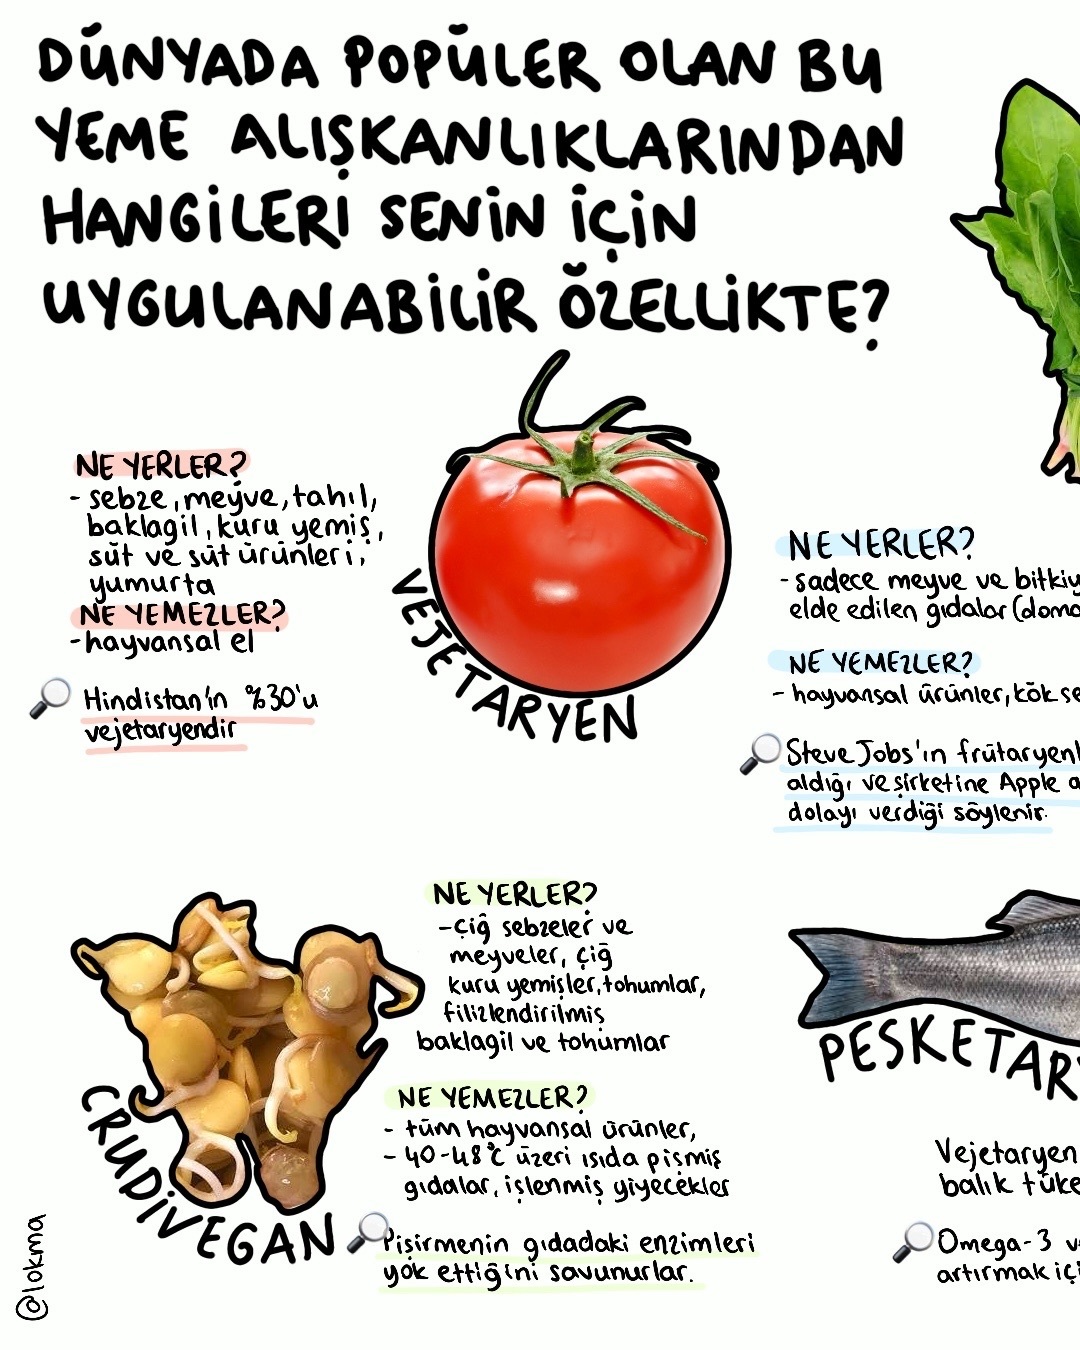 DÜNYADA POPÜLER OLAN BU
YEME ALIŞKANLIKLARINDAN
HANGİLERİ SENİN İÇİN
UYGULANABİLİR ÖZELLİKTE?
NE YERLER?
- sebze, meyve, tahıl,
baklagil, kuru yemiş,
süt ve süt ürünleri,
yumurta
NE YEMEZLER?
- hayvansal et
Hindistan'ın %30'u
vejetaryendir
VEJETARYEN
NE YERLER?
- sadece meyve ve bitkiy
elde edilen gıdalar (doma
NE YEMEZLER?
- hayvansal ürünler, kök se
Steve Jobs'ın frütaryenl
aldığı ve şirketine Apple a
dolayı verdiği söylenir.
CRUDİVEGAN
NE YERLER?
- çiğ sebzeler ve
meyveler, çiğ
kuru yemişler, tohumlar,
filizlendirilmiş
baklagil ve tohumlar
NE YEMEZLER?
- tüm hayvansal ürünler,
- 40-48°C üzeri ısıda pişmiş
gıdalar, işlenmiş yiyecekler
Pişirmenin gıdadaki enzimleri
yok ettiğini savunurlar.
PESKETARY
Vejetaryen
balık tüke
Omega-3 v
artırmak içi
@lokma